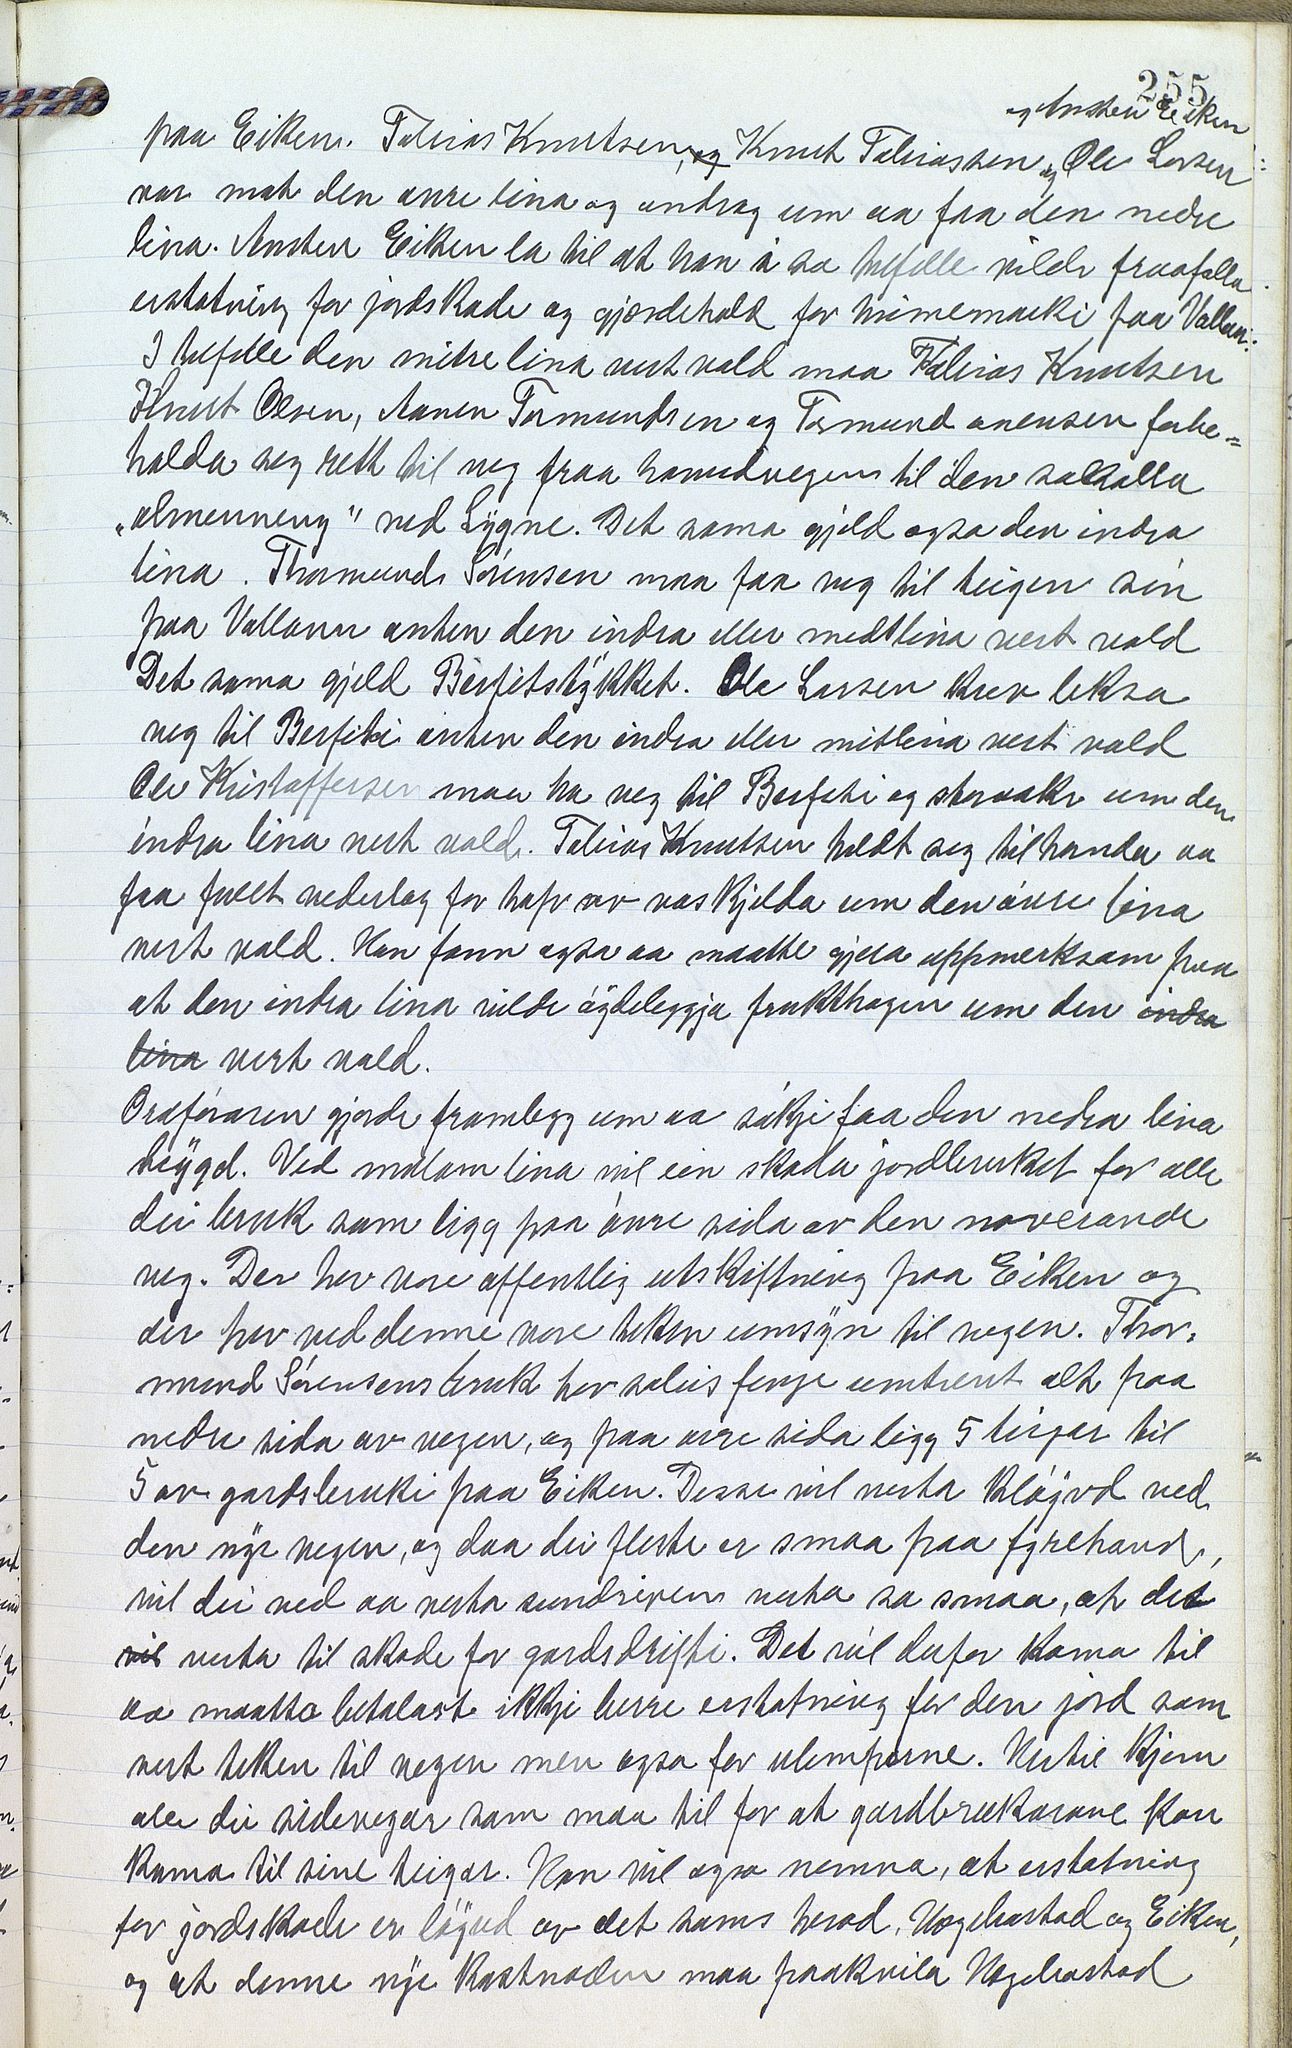 255
og Ansten Eiken
paa Eiken. Tobias Knutsen, og Knut Tobiassen og Ole Larsen
var mot den øvre lina og androg um aa faa den nedre
lina. Ansten Eiken la til at han i so tilfelle vilde fraafalla
erstatning for jordskade og gjærdehald for heimemarki paa Vollan.
I tilfelle den mitre lina vert vald maa Tobias Knutsen
Knut Olsen, Aanen Tormundsen og Tormund Anensen forbe=
halda seg rett til veg fraa hovudvegen til den sokalla
"almenneng" ved Lygne. Det sama gjeld ogso den indra
lina. Thormund Sørensen maa faa veg til teigen sin
paa Vollann anten den indra eller medtlina vert vald
Det sama gjeld Berfitstykket. Ole Larsen krev likso
veg til Berfiti anten den indra eller mitlina vert vald
Ole Kristoffersen maa ha veg til Berfiti og storaakr um den
indra lina vert vald. Tobias Knutsen heldt seg tilhanda aa
faa fullt vederlag for tap av vaskjelda um den øvre lina
vert vald. Han fann ogso aa maatte gjera uppmerksam paa
at den indra lina vilde øydeleggja frukthagen um den indra
lina vert vald.
Ordføraren gjorde framlegg um aa søkje faa den nedra lina
bygd. Ved mellom lina vil ein skada jordbruket for alle
dei bruk som ligg paa øvre sida av den noverande
veg. Der hev vore offentlig utskiftning paa Eiken og
der hev ved denne vore teken umsyn til vegen. Thor=
mund Sørensens bruk hev soleis fenge umtrent alt paa
nedre sida av vegen, og paa øvre sida ligg 5 teigar til
5 av gardsbruki paa Eiken. Desse vil verta kløyvd ved
den nye vegen, og daa dei fleste er smaa paa fyrehand,
vil dei ved aa verta sundrivne verta so smaa, at det
vil verta til skade for gardsdrifti. Det vil derfor koma til
aa maatte betalast ikkje berre erstatning for den jord som
vert teken til vegen men ogso for ulemperne. Hertil kjem
alle dei sidevegar som maa til for at gardbrukarane kan
koma til sine teigar. Han vil ogso nemna, at erstatning
for jordskade er løyvd av det sams herad, Hægebostad og Eiken,
og at denne nye kostnaden maa paakvila Hægebostad